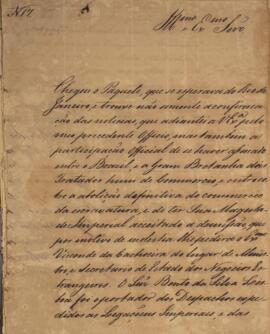 N 17
Illmo. Exmo.
e Exo. Senr.
Chegou o Paquete, que se esperava do Rio de
Janeiro, e trouxe não somente a confirma-
ção das noticias, que adiantei a V. Exa. pelo
meu precedente Officio, mas tambem a
participação Official de se haver assinado
entre o Brasil, e a Gram Bretanha dois
Tratados, hum de Commercio, e outro so-
bre a abolição definitiva do commercio
da escravatura, e de ter Sua Magesta-
de Imperial acceitado a demissão, que
por motivo de molestia lhe pedira o
Visconde da Cachoeira do lugar de Minis-
tro, e Secretario de Estado dos Negocios Es-
trangeiros. O Snr. Bento da Silva Lis-
boa foi o portador dos Despachos expe-
didos as Legações Imperiaes, e das